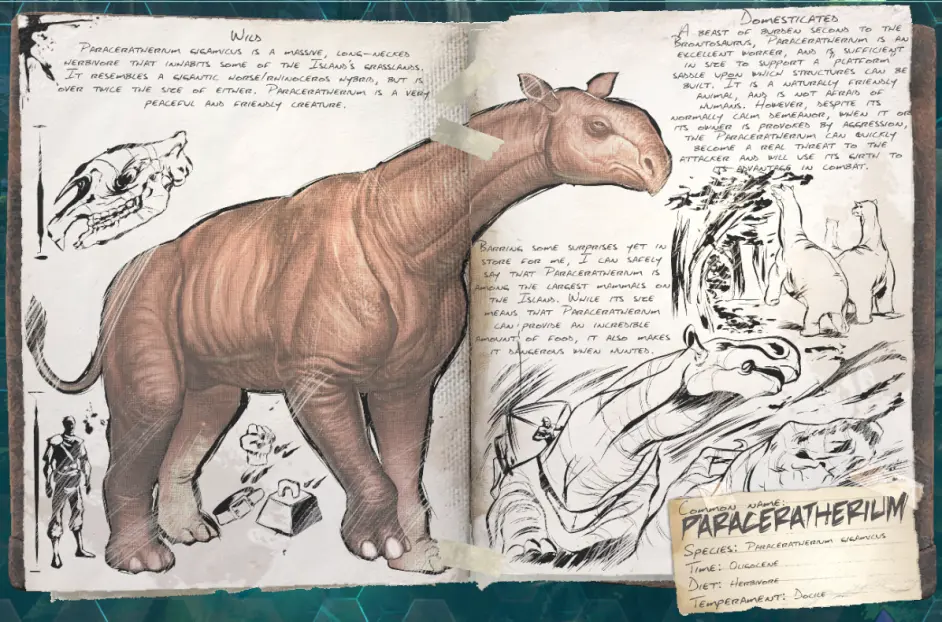 Wild
Paraceratherium gigamicus is a massive, long-necked
herbivore that inhabits some of the Island's grasslands.
It resembles a gigantic horse/rhinoceros hybrid, but is
over twice the size of either. Paraceratherium is a very
peaceful and friendly creature.
Domesticated
A beast of burden second to the
Brontosaurus, Paraceratherium is an
excellent worker, and is sufficient
in size to support a platform
saddle upon which structures can be
built. It is a naturally friendly
animal, and is not afraid of
humans. However, despite its
normally calm demeanor, when it or
its owner is provoked by aggression,
the Paraceratherium can quickly
become a real threat to the
attacker and will use its girth to
its advantage in combat.
Barring some surprises yet in
store for me, I can safely
say that Paraceratherium is
among the largest mammals on
the Island. While its size
means that Paraceratherium
can provide an incredible
amount of food, it also makes
it dangerous when hunted.
Common name:
Paraceratherium
Species: Paraceratherium gigamicus
Time: Oligocene
Diet: Herbivore
Temperament: Docile